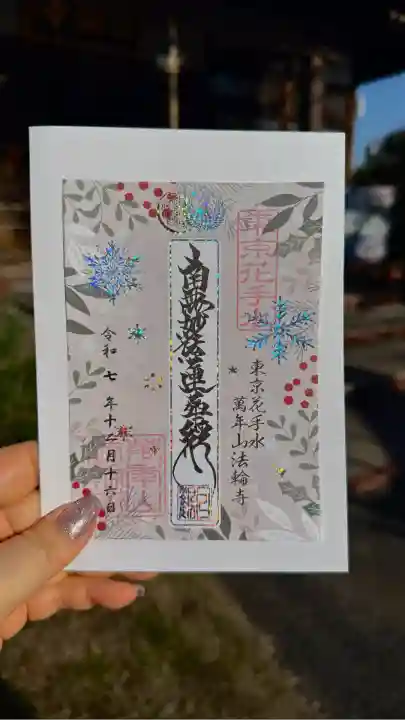 東京花手水
東京花手水
萬年山法輪寺
南無妙法蓮華経
令和七年十二月十六日